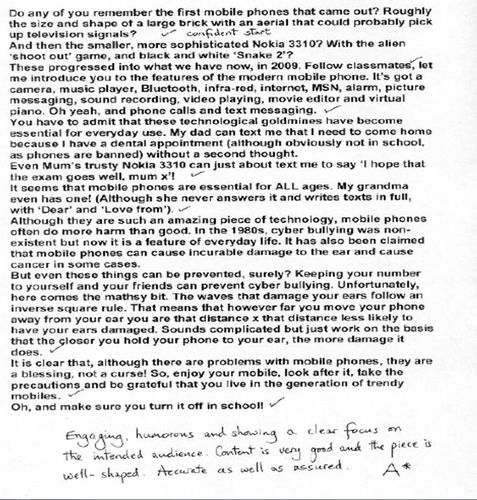 Do any of you remember the first mobile phones that came out? Roughly
the size and shape of a large brick with an aerial that could probably pick
up television signals? ✓ confident start
And then the smaller, more sophisticated Nokia 3310? With the alien
'shoot out' game, and black and white 'Snake 2'?
These progressed into what we have now, in 2009. Fellow classmates, let
me introduce you to the features of the modern mobile phone. It's got a
camera, music player, Bluetooth, infra-red, internet, MSN, alarm, picture
messaging, sound recording, video playing, movie editor and virtual
piano. Oh yeah, and phone calls and text messaging. ✓
You have to admit that these technological goldmines have become
essential for everyday use. My dad can text me that I need to come home
because I have a dental appointment (although obviously not in school,
as phones are banned) without a second thought.
Even Mum's trusty Nokia 3310 can just about text me to say 'I hope that
the exam goes well, mum x'! ✓
It seems that mobile phones are essential for ALL ages. My grandma
even has one! (Although she never answers it and writes texts in full,
with 'Dear' and 'Love from'). ✓
Although they are such an amazing piece of technology, mobile phones
often do more harm than good. In the 1980s, cyber bullying was non-
existent but now it is a feature of everyday life. It has also been claimed
that mobile phones can cause incurable damage to the ear and cause
cancer in some cases.
But even these things can be prevented, surely? Keeping your number
to yourself and your friends can prevent cyber bullying. Unfortunately,
here comes the mathsy bit. The waves that damage your ears follow an
inverse square rule. That means that however far you move your phone
away from your ear you are that distance x that distance less likely to
have your ears damaged. Sounds complicated but just work on the basis
that the closer you hold your phone to your ear, the more damage it
does. ✓
It is clear that, although there are problems with mobile phones, they are
a blessing, not a curse! So, enjoy your mobile, look after it, take the
precautions and be grateful that you live in the generation of trendy
mobiles. ✓
Oh, and make sure you turn it off in school! ✓
Engaging, humorous and showing a clear focus on
the intended audience. Content is very good and the piece is
well-shaped. Accurate as well as assured. A*